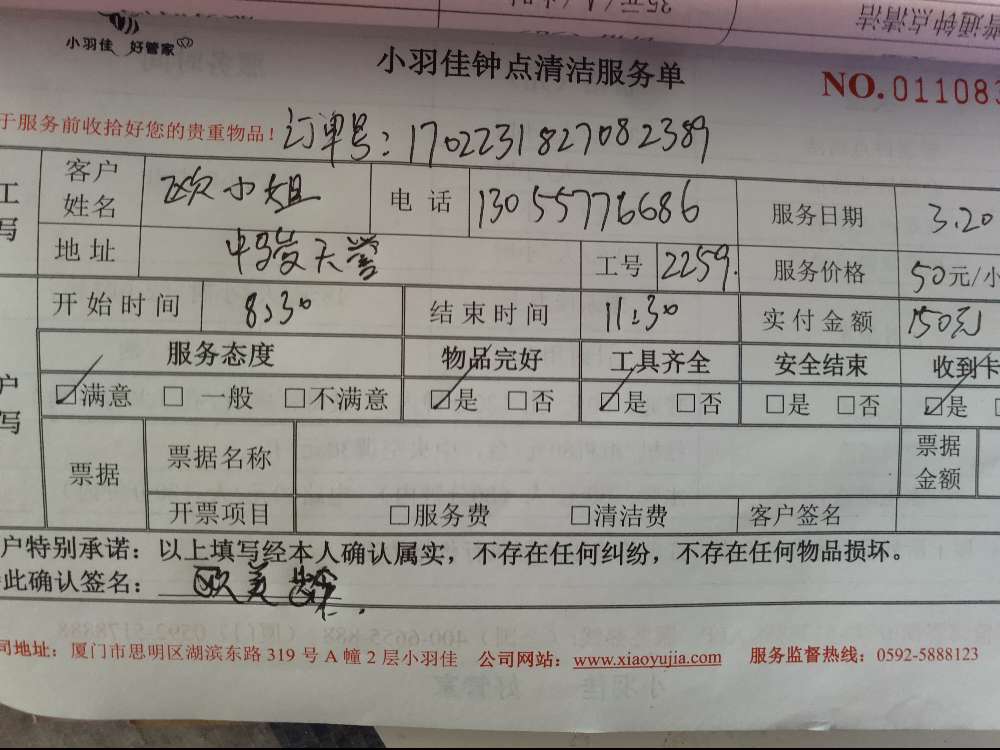 35元/人/小时
普通钟点清洁
小羽佳 好管家
小羽佳钟点清洁服务单
NO.011083
于服务前收拾好您的贵重物品！ 订单号：1702231827082389
工 客户姓名 欧小姐 电话 13055776686 服务日期 3.20
写 地址 中骏天誉 工号 2259. 服务价格 50元/小
开始时间 8:30 结束时间 11:30 实付金额 150元
服务态度 物品完好 工具齐全 安全结束 收到卡
户 ☑满意 □一般 □不满意 ☑是 □否 ☑是 □否 □是 □否 ☑是
写 票据 票据名称 票据金额
开票项目 □服务费 □清洁费 客户签名
户特别承诺：以上填写经本人确认属实，不存在任何纠纷，不存在任何物品损坏。
此确认签名： 欧美
司地址：厦门市思明区湖滨东路 319 号 A 幢 2 层小羽佳 公司网站：www.xiaoyujia.com 服务监督热线：0592-5888123